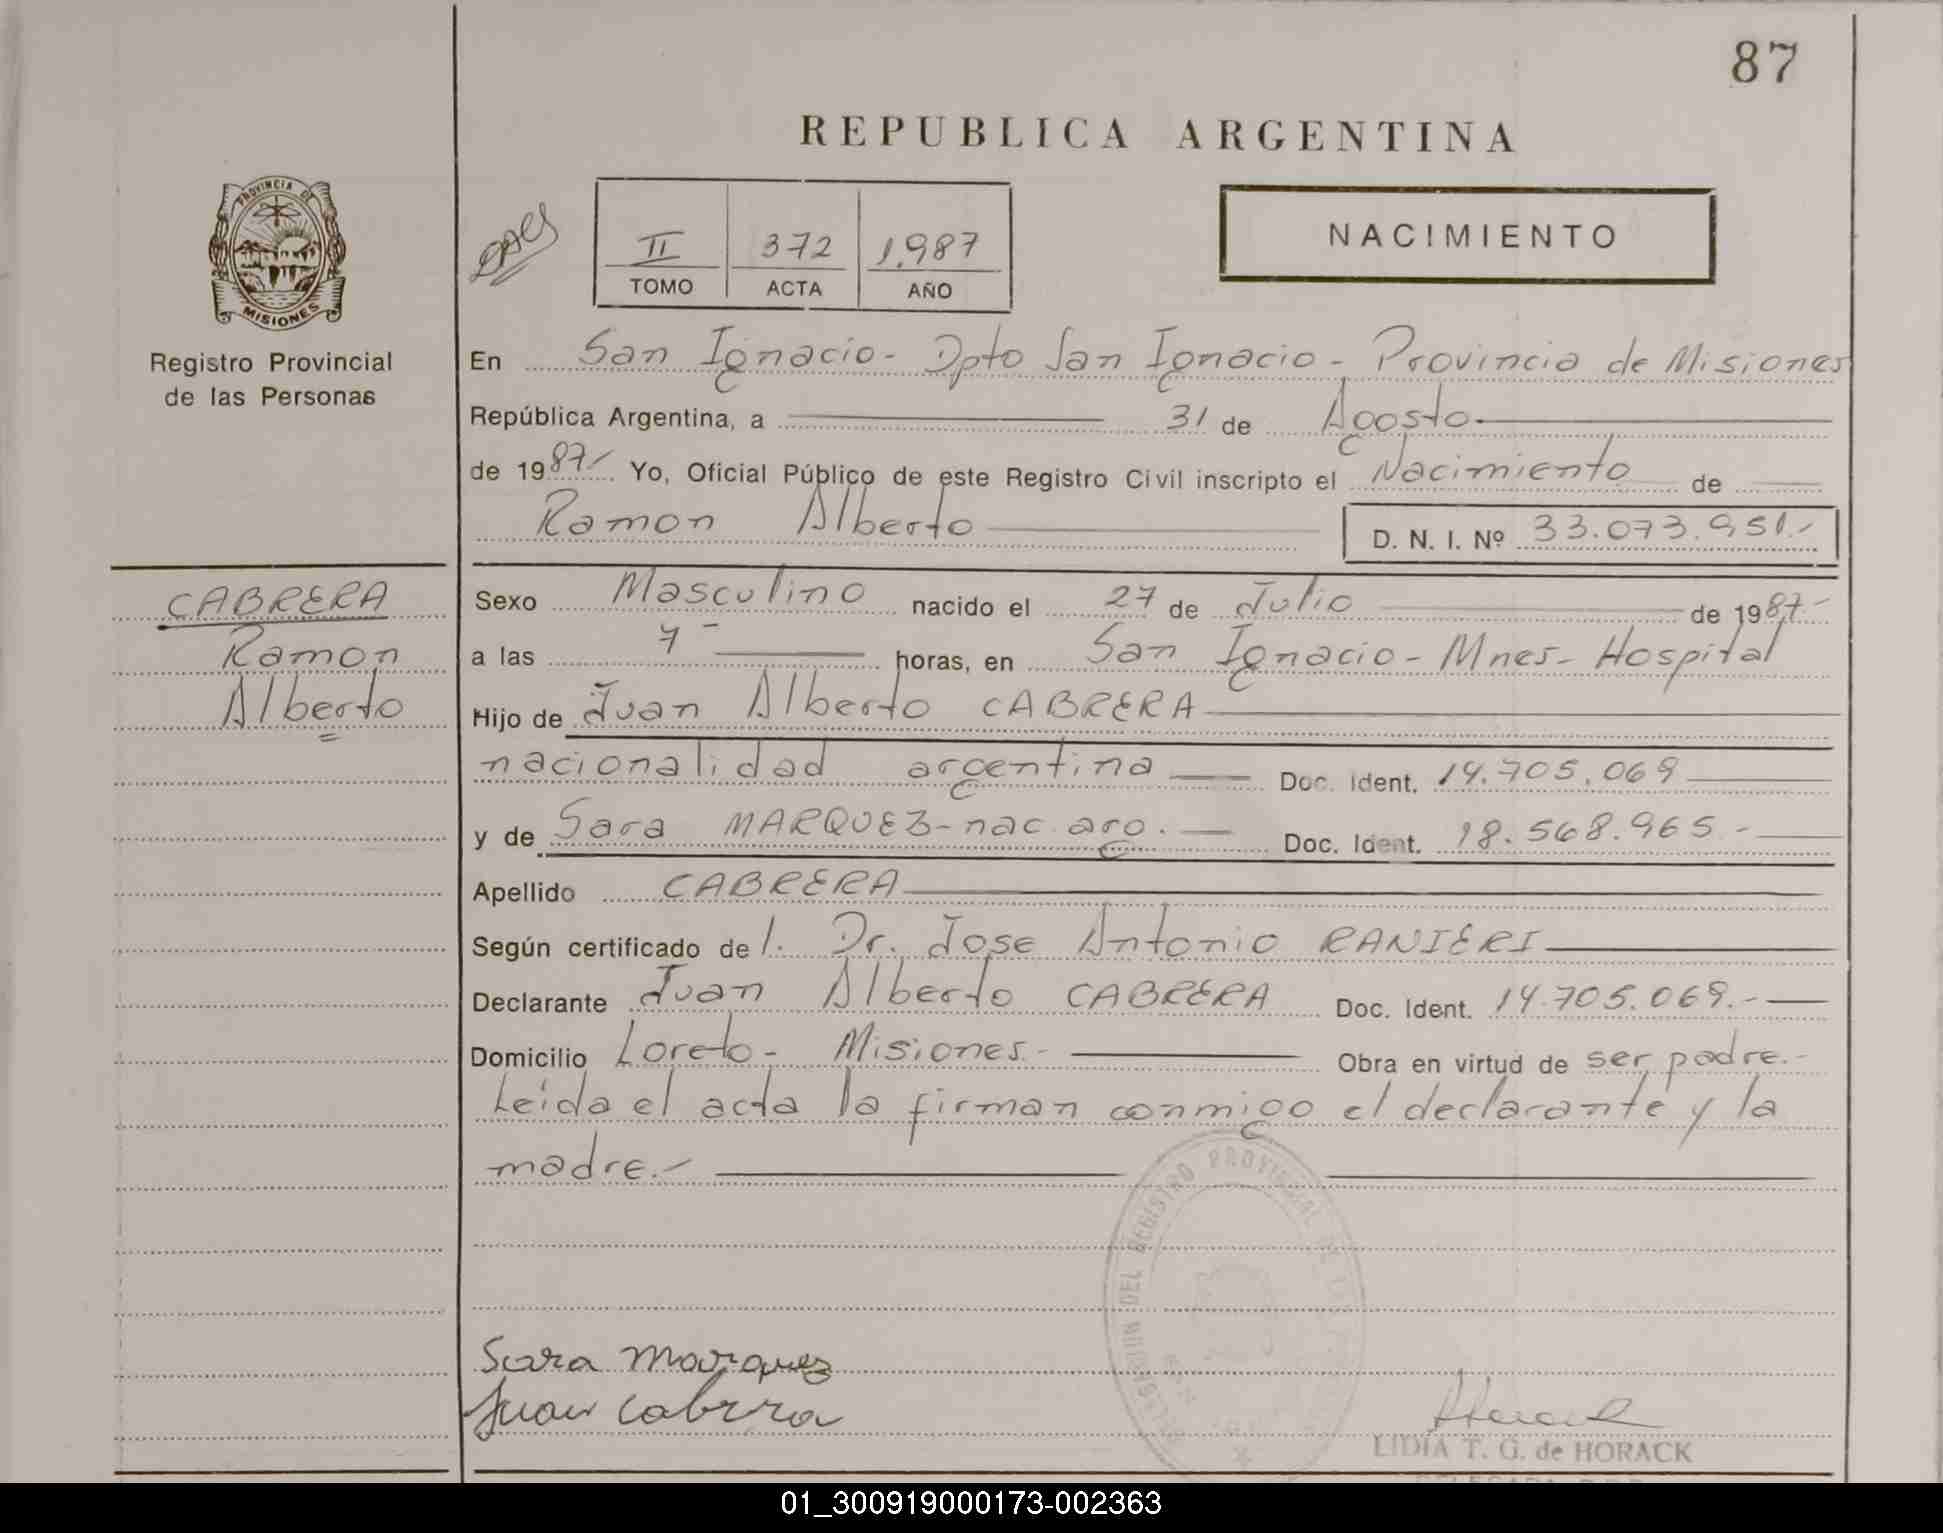 87
REPUBLICA ARGENTINA
PROVINCIA DE
MISIONES
Registro Provincial
de las Personas
II 372 1.987
TOMO ACTA AÑO
NACIMIENTO
En San Ignacio - Dpto San Ignacio - Provincia de Misiones
República Argentina, a 31 de Agosto
de 1987 Yo, Oficial Público de este Registro Civil inscripto el Nacimiento de
Ramon Alberto D. N. I. Nº 33.073.951.-
CABRERA
Ramon
Alberto
Sexo Masculino nacido el 27 de Julio de 1987-
a las 7- horas, en San Ignacio - Mnes - Hospital
Hijo de Juan Alberto CABRERA
nacionalidad argentina Doc. Ident. 14.705.069
y de Sara MARQUEZ - nac. arg. Doc. Ident. 18.568.965.-
Apellido CABRERA
Según certificado de l. Dr. Jose Antonio RANIERI
Declarante Juan Alberto CABRERA Doc. Ident. 14.705.069.-
Domicilio Loreto - Misiones.- Obra en virtud de ser padre.-
Leida el acta la firman conmigo el declarante y la
madre.-
DELEGACION DEL REGISTRO PROVINCIAL DE LAS
Sara Marquez
Juan Cabrera
Horack
LIDIA T. G. de HORACK
01_300919000173-002363